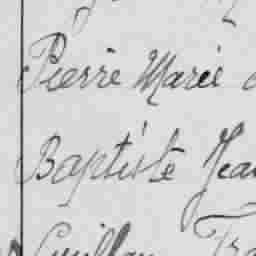 Pierre Marie
Baptiste Jea
Guillau Fra